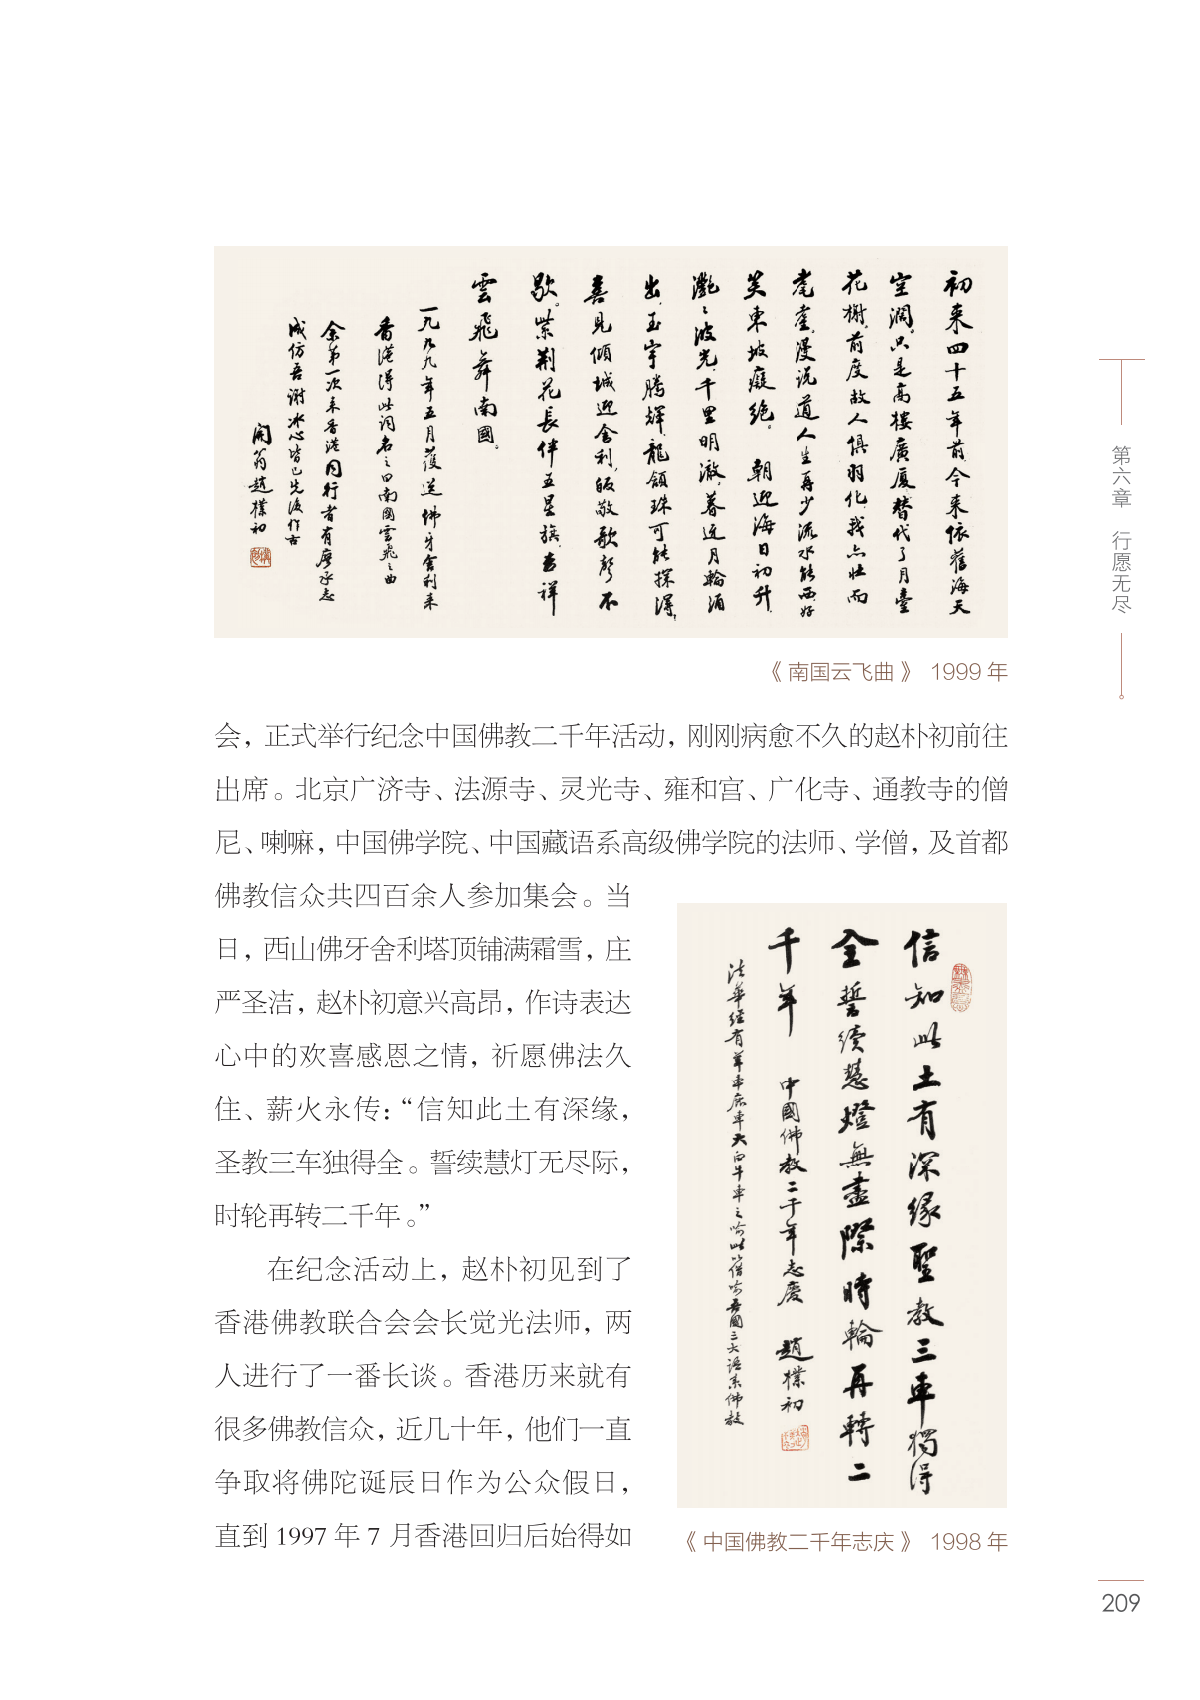 初来四十五年前今来依舊海天
空闊只是高樓廣厦替代了月臺
花榭前度故人俱羽化我亦壯而
耄耋漫说道人生再少流水能西好
笑東坡癡絶 朝迎海日初升
灔灔波光千里明澈暮近月輪涌
出玉宇騰輝龍頷珠可能探得
喜見傾城迎舍利皈敬歌聲不
歇紫荆花長伴五星旗吉祥
雲飛舞南國
一九九九年五月護送佛牙舍利来
香港得此词名之曰南國雲飛之曲
余第一次来香港同行者有廖承志
成仿吾谢冰心皆已先後作古
開翁趙樸初
《南国云飞曲》 1999 年
第六章 行愿无尽
会，正式举行纪念中国佛教二千年活动，刚刚病愈不久的赵朴初前往
出席。北京广济寺、法源寺、灵光寺、雍和宫、广化寺、通教寺的僧
尼、喇嘛，中国佛学院、中国藏语系高级佛学院的法师、学僧，及首都
佛教信众共四百余人参加集会。当
日，西山佛牙舍利塔顶铺满霜雪，庄
严圣洁，赵朴初意兴高昂，作诗表达
心中的欢喜感恩之情，祈愿佛法久
住、薪火永传：“信知此土有深缘，
圣教三车独得全。誓续慧灯无尽际，
时轮再转二千年。”
在纪念活动上，赵朴初见到了
香港佛教联合会会长觉光法师，两
人进行了一番长谈。香港历来就有
很多佛教信众，近几十年，他们一直
争取将佛陀诞辰日作为公众假日，
直到 1997 年 7 月香港回归后始得如
信知此土有深缘聖教三車獨得
全誓續慧燈無盡際時輪再轉二
千年 中國佛教二千年志慶 趙樸初
法華經有羊車鹿車大白牛車之喻此以借喻吾國三大語系佛教
《中国佛教二千年志庆》 1998 年
209